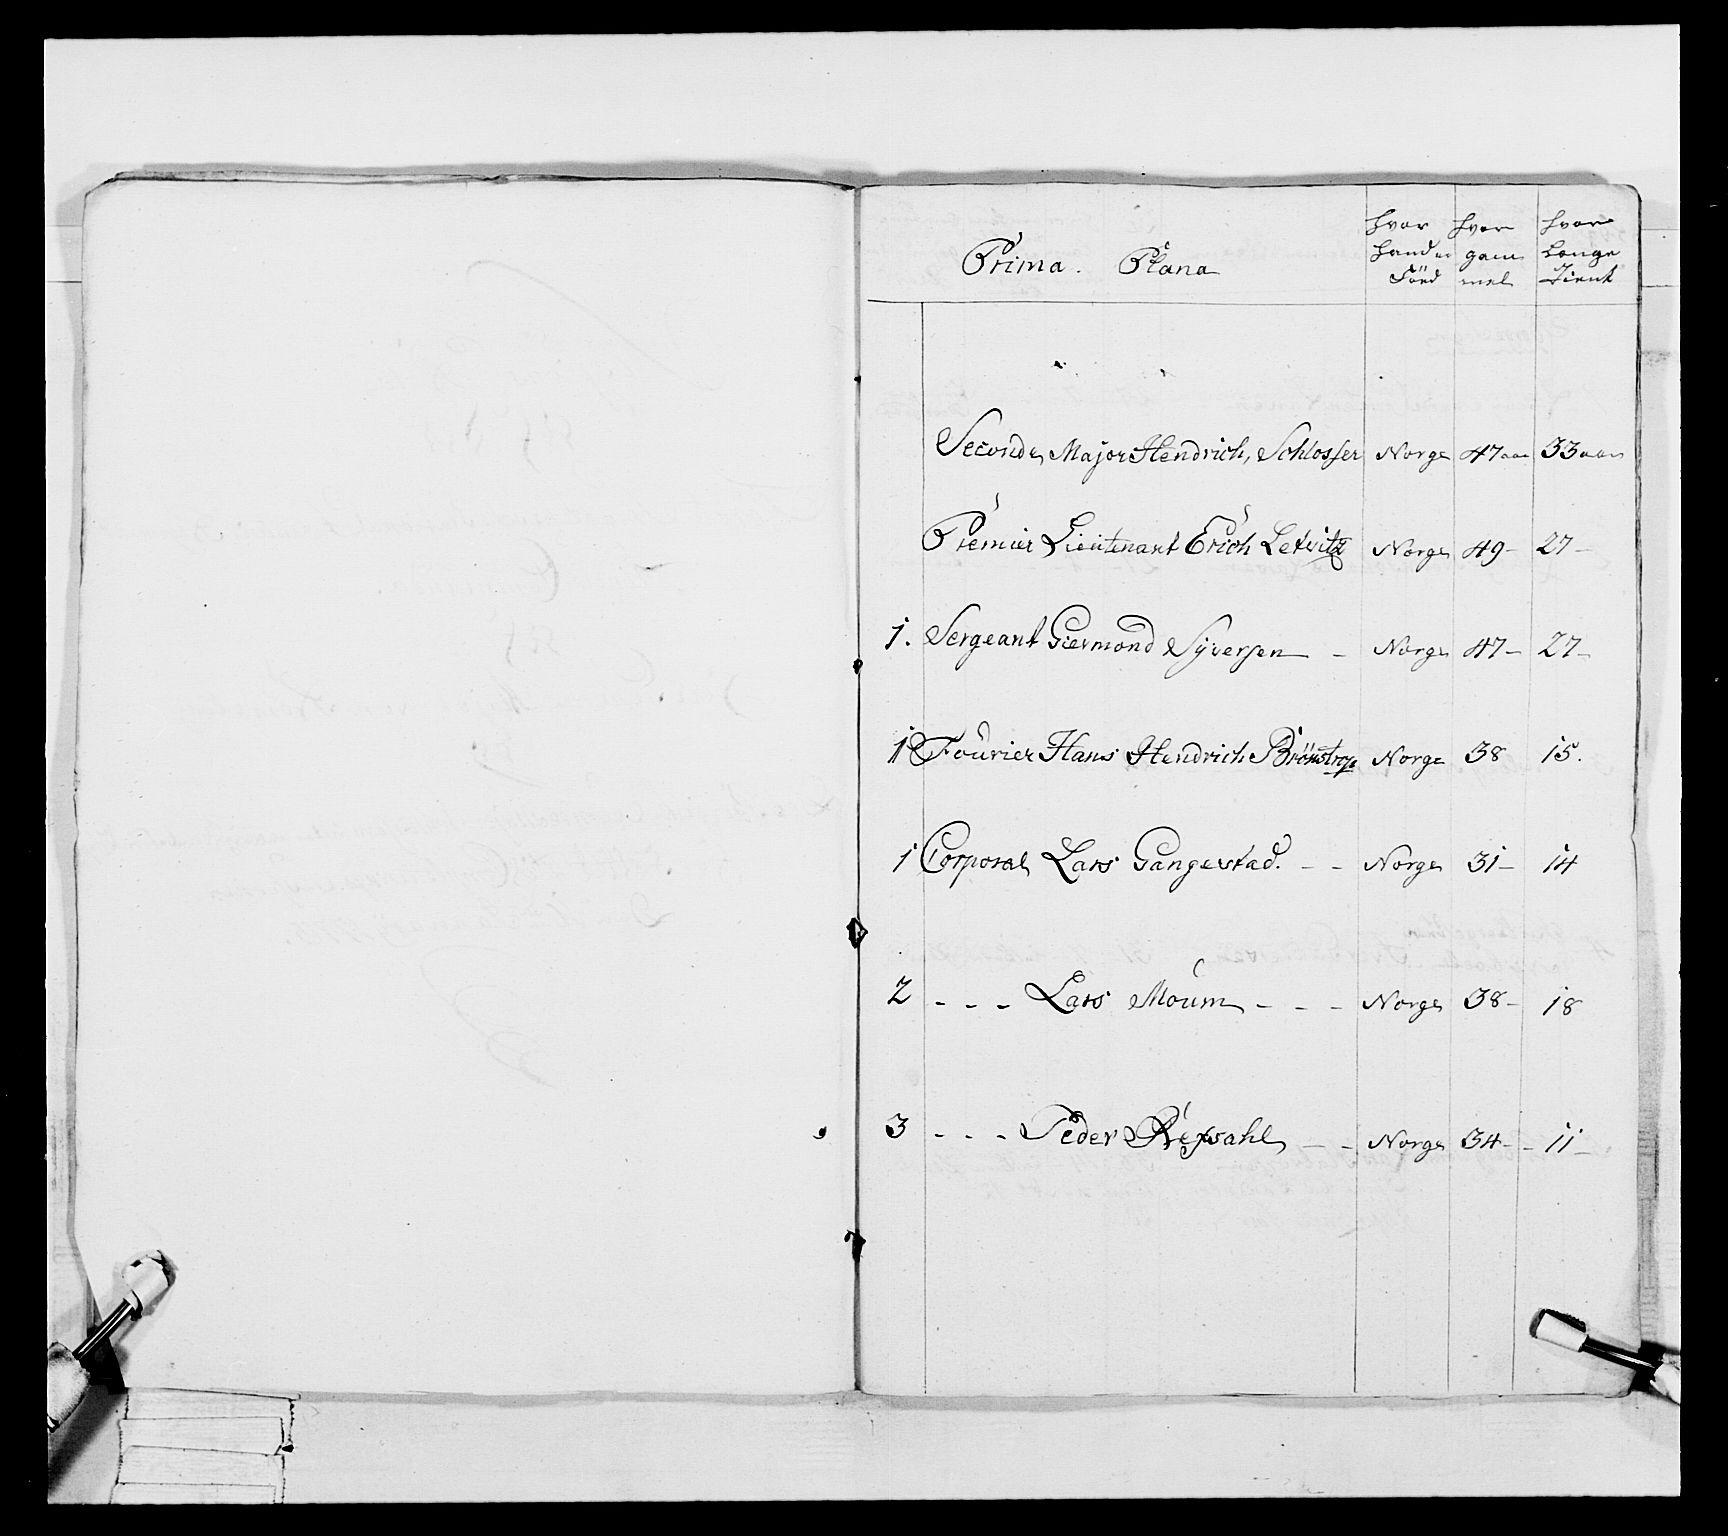 Prima. Plana
hvor hand er Föed
hvor gam mel
hvor Længe Tient
Seconde Major Hendrich Schlosser Norge 47 aar 33 aar
Premier Lieutenant Erich Letvitz Norge 49 - 27 -
1. Sergeant Giermond Syversen - Norge 47 - 27 -
1 Fourier Hans Hendrich Brönstrop Norge 38 15.
1 Corporal Lars Gangestad. - - Norge 31 - 14
2 - - - Lars Moum - - - Norge 38 - 18
3 - - - Peder Refsahl - - Norge 34 - - 11 -